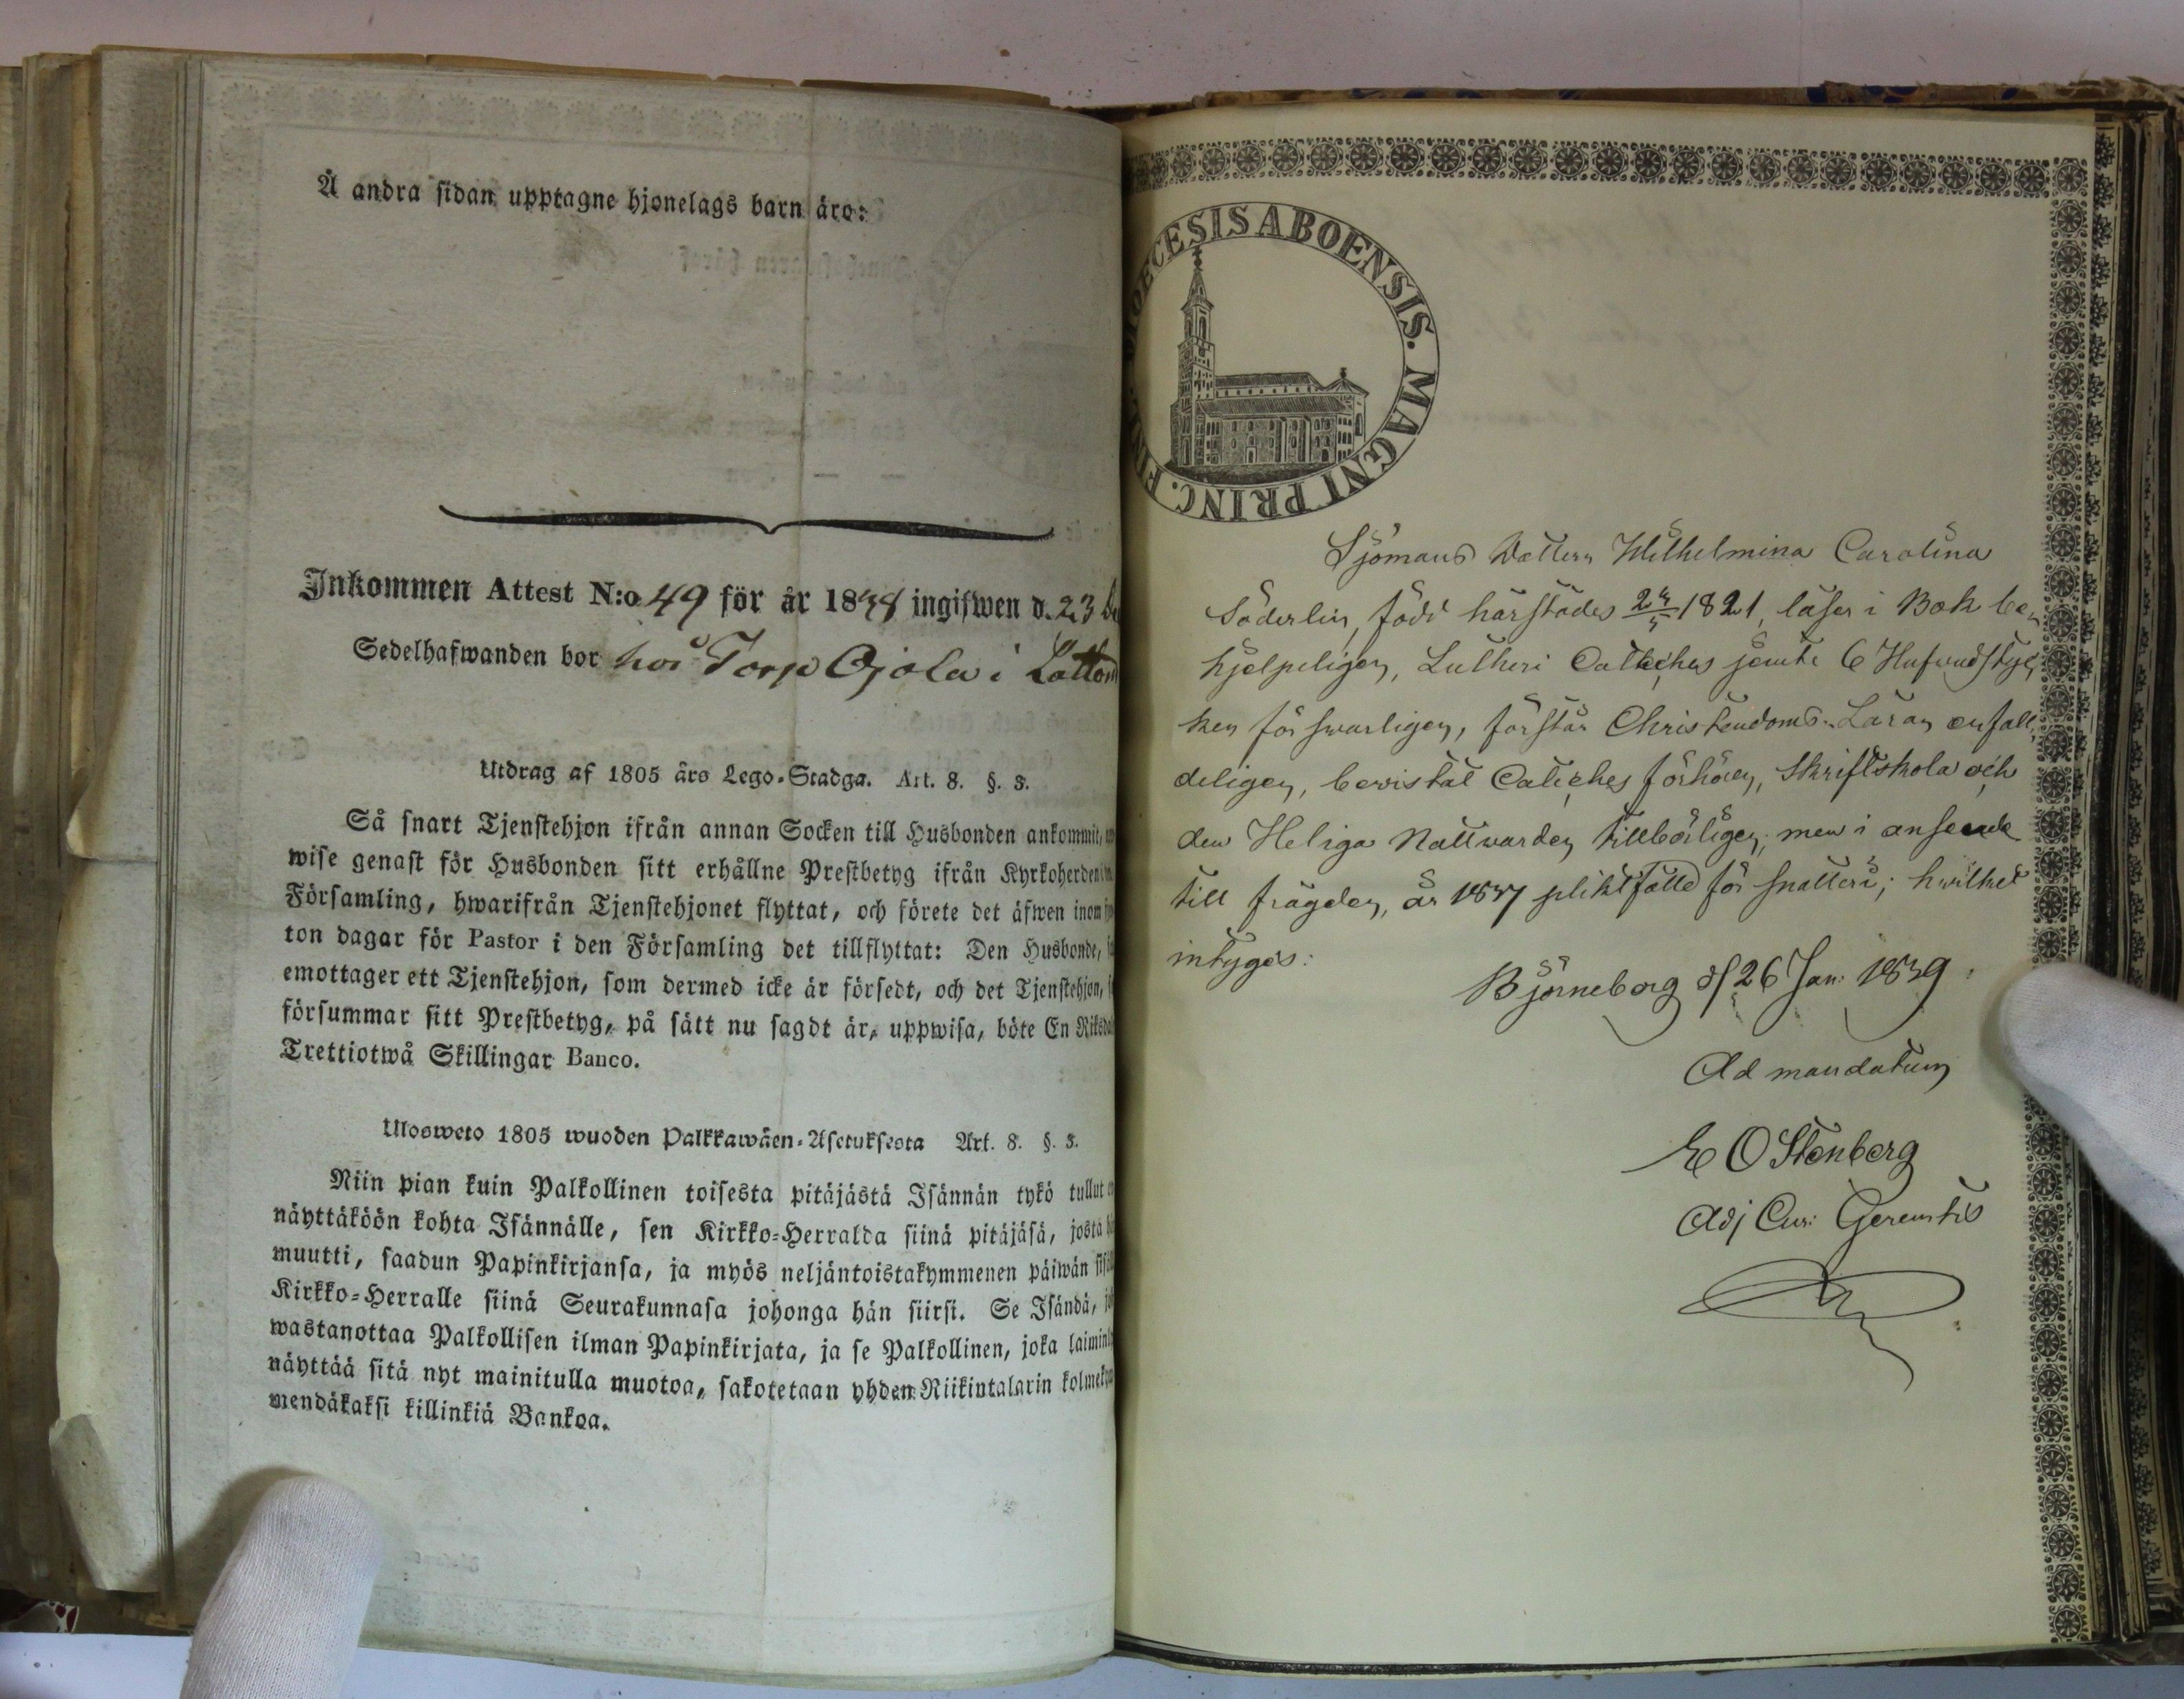 Å andra sidan upptagne hjonelags barn äro:
Inkommen Attest N:o 49 för år 1838 ingifwen d. 23
Sedelhafwanden bor hos Torp Ojala i
Utdrag af 1805 års Lego-Stadga. Art. 8. §. 3.
Så snart Tjenstehjon ifrån annan Socken till Husbonden ankommit,
wise genast för Husbonden sitt erhållne Prestbetyg ifrån Kyrkoherden
Församling, hwarifrån Tjenstehjonet flyttat, och förete det äfwen inom
ton dagar för Pastor i den Församling det tillflyttat: Den Husbonde,
emottager ett Tjenstehjon, som dermed icke är försedt, och det Tjenstehjon,
försummar sitt Prestbetyg, på sätt nu sagdt är, uppwisa, böte En
Trettiotwå Skillingar Banco.
Ulosweto 1805 wuoden Palkkawäen-Asetuksesta Art. 8. §. 3.
Niin pian kuin Palkollinen toisesta pitäjästä Isännän tykö tullut
näyttäköön kohta Isännälle, sen Kirkko-Herralda siinä pitäjäsä, josta
muutti, saadun Papinkirjansa, ja myös neljäntoistakymmenen päiwän
Kirkko-Herralle siinä Seurakunnasa johonga hän siirsi. Se Isändä,
wastanottaa Palkollisen ilman Papinkirjata, ja se Palkollinen, joka
näyttää sitä nyt mainitulla muotoa, sakotetaan yhden Riikintalarin
mendäkaksi killinkiä Bankoa.
DIOECESIS ABOENSIS. MAGNI PRINC.
Sjömans Dottern Wilhelmina Carolina
Söderlin, född härstädes 1821, läser i Bok be-
hjelpeligen, Lutheri Cateches jemte 6 Hufwudstyc-
ken förswarligen, förstår Christendoms-Läran enfall-
deligen, bevistat Cateches förhören, Skriftskola och
den Heliga Nattwarden tillbörligen; men i anseende
till frägden, år 1837 pliktfälld för snatteri; hwilket
intygas:
Björneborg d 26 Jan: 1839.
Ad mandatum
E O Stenberg
Adj Cur: Gerentis